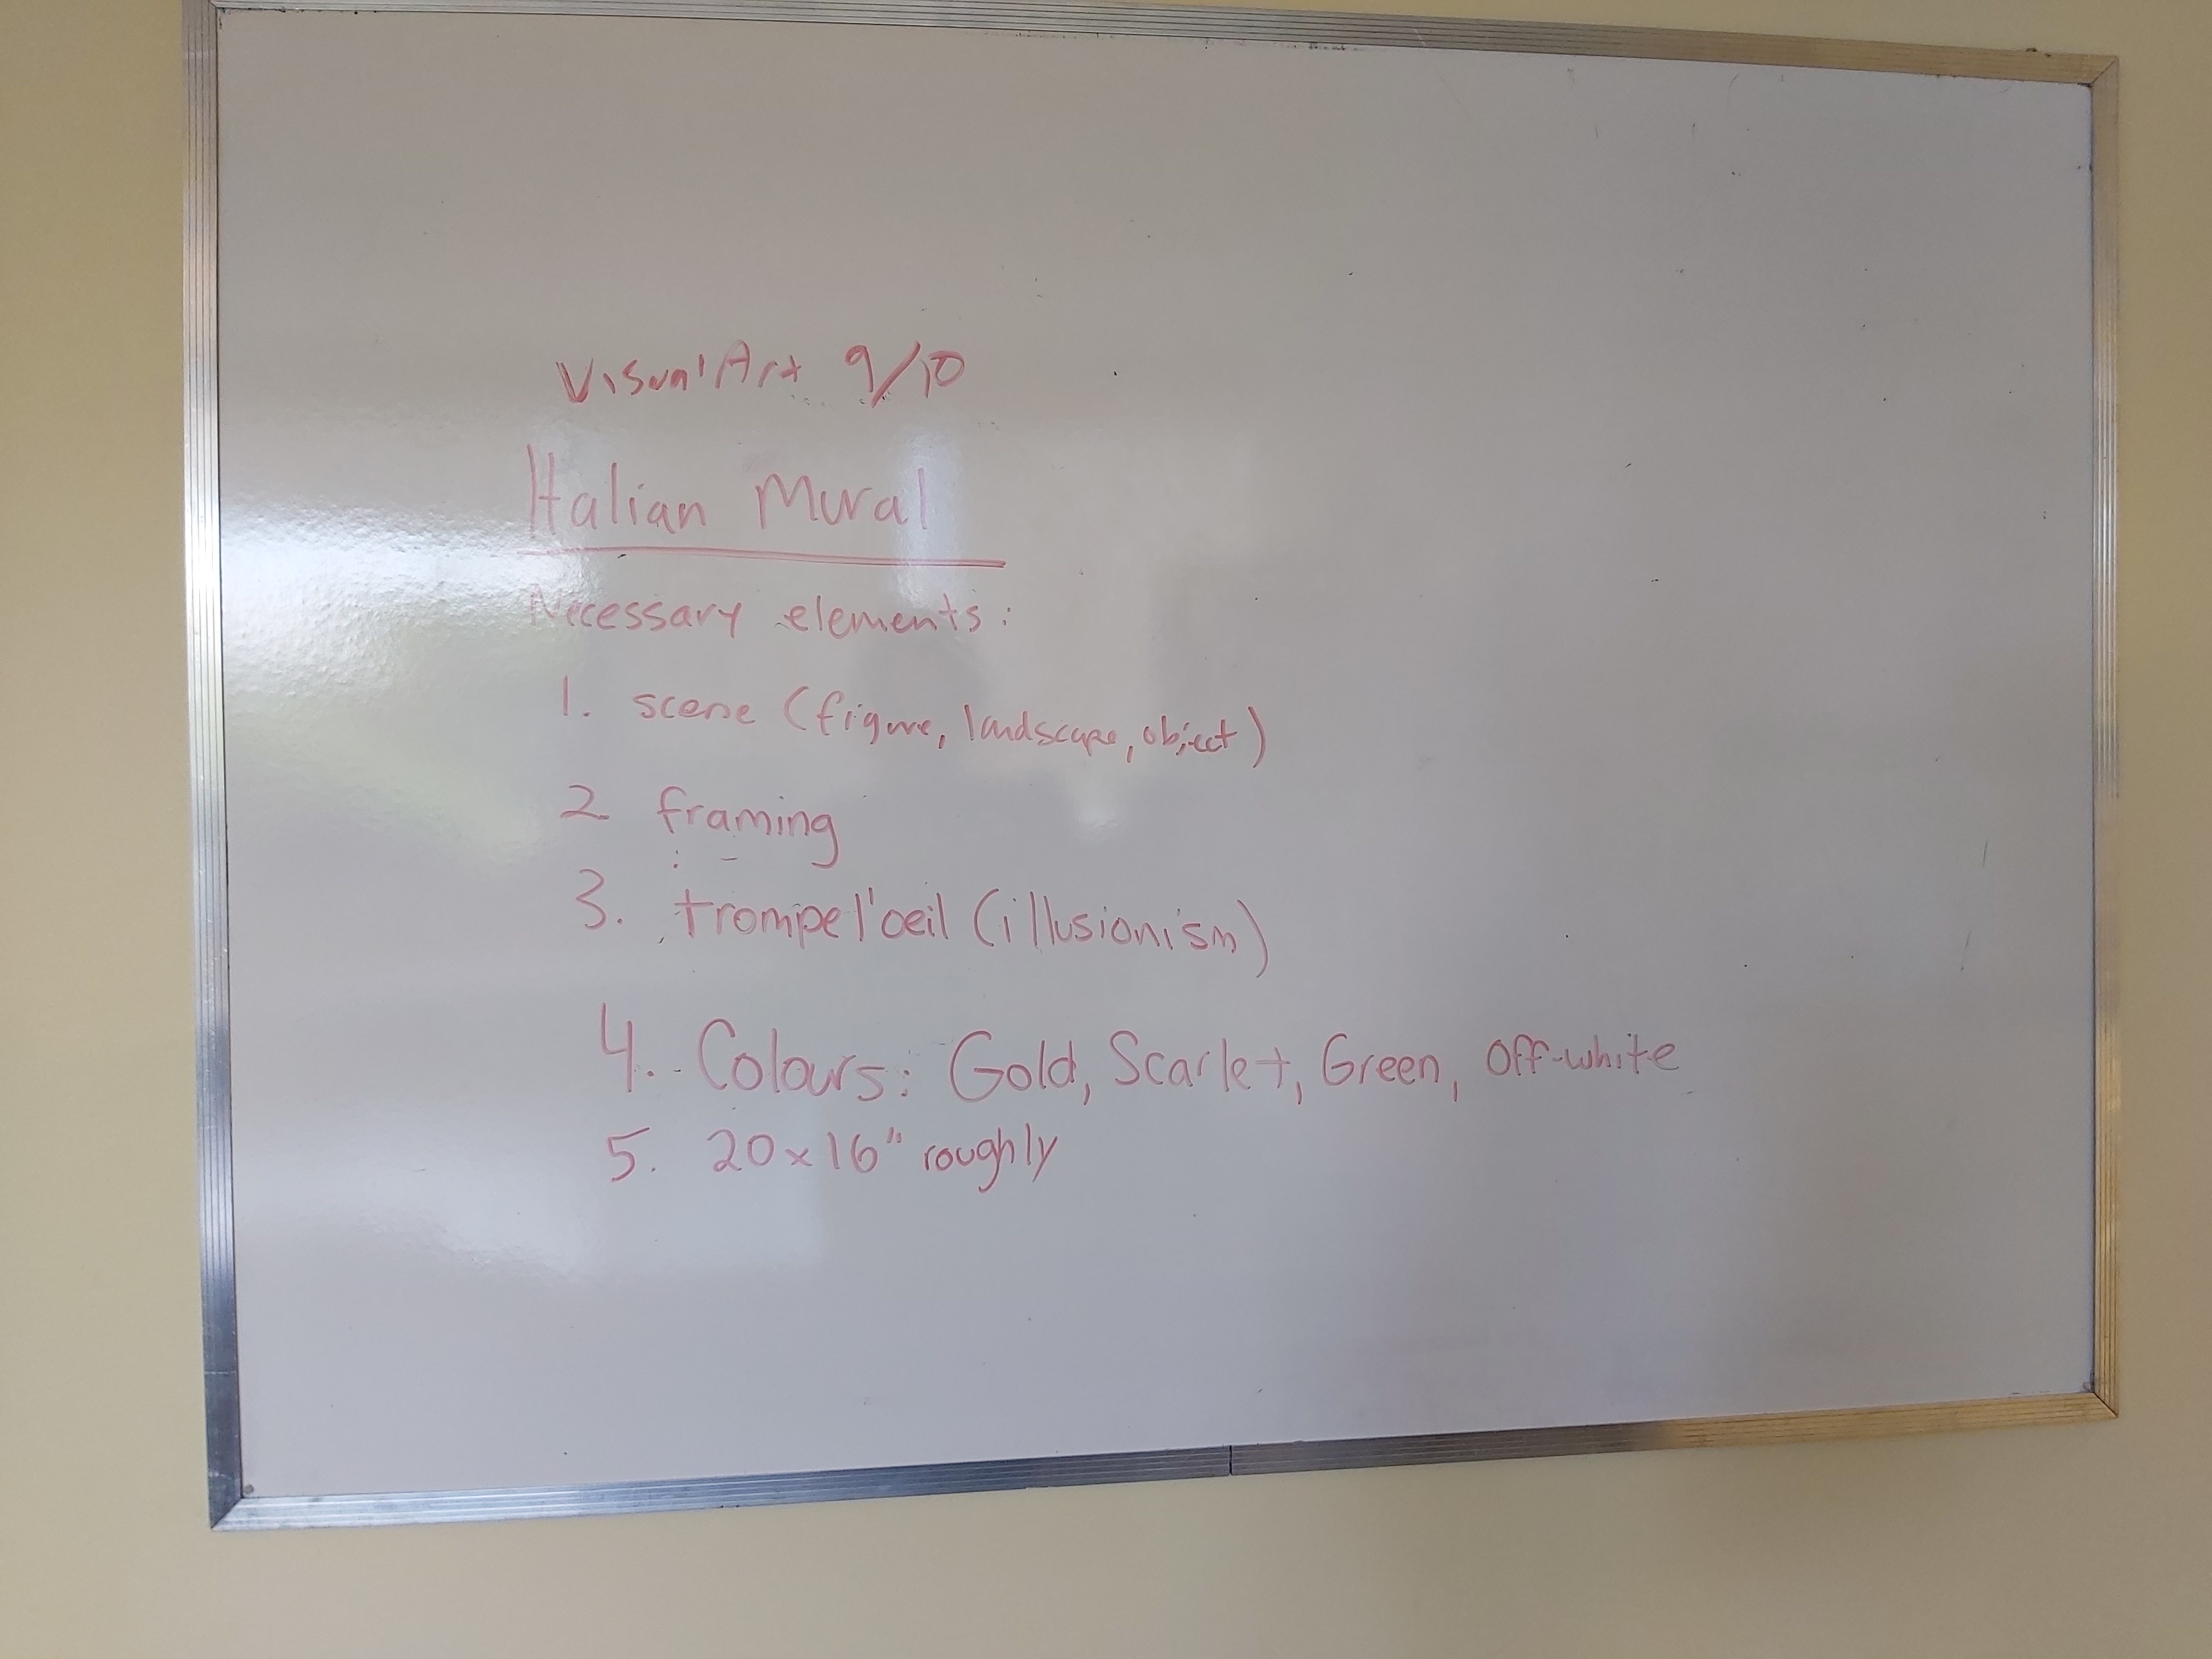 Visual Art 9/10
Italian Mural
Necessary elements:
1. scene (figure, landscape, object)
2 framing
3. trompe l'oeil (illusionism)
4. Colours: Gold, Scarlet, Green, Off-white
5. 20x16" roughly